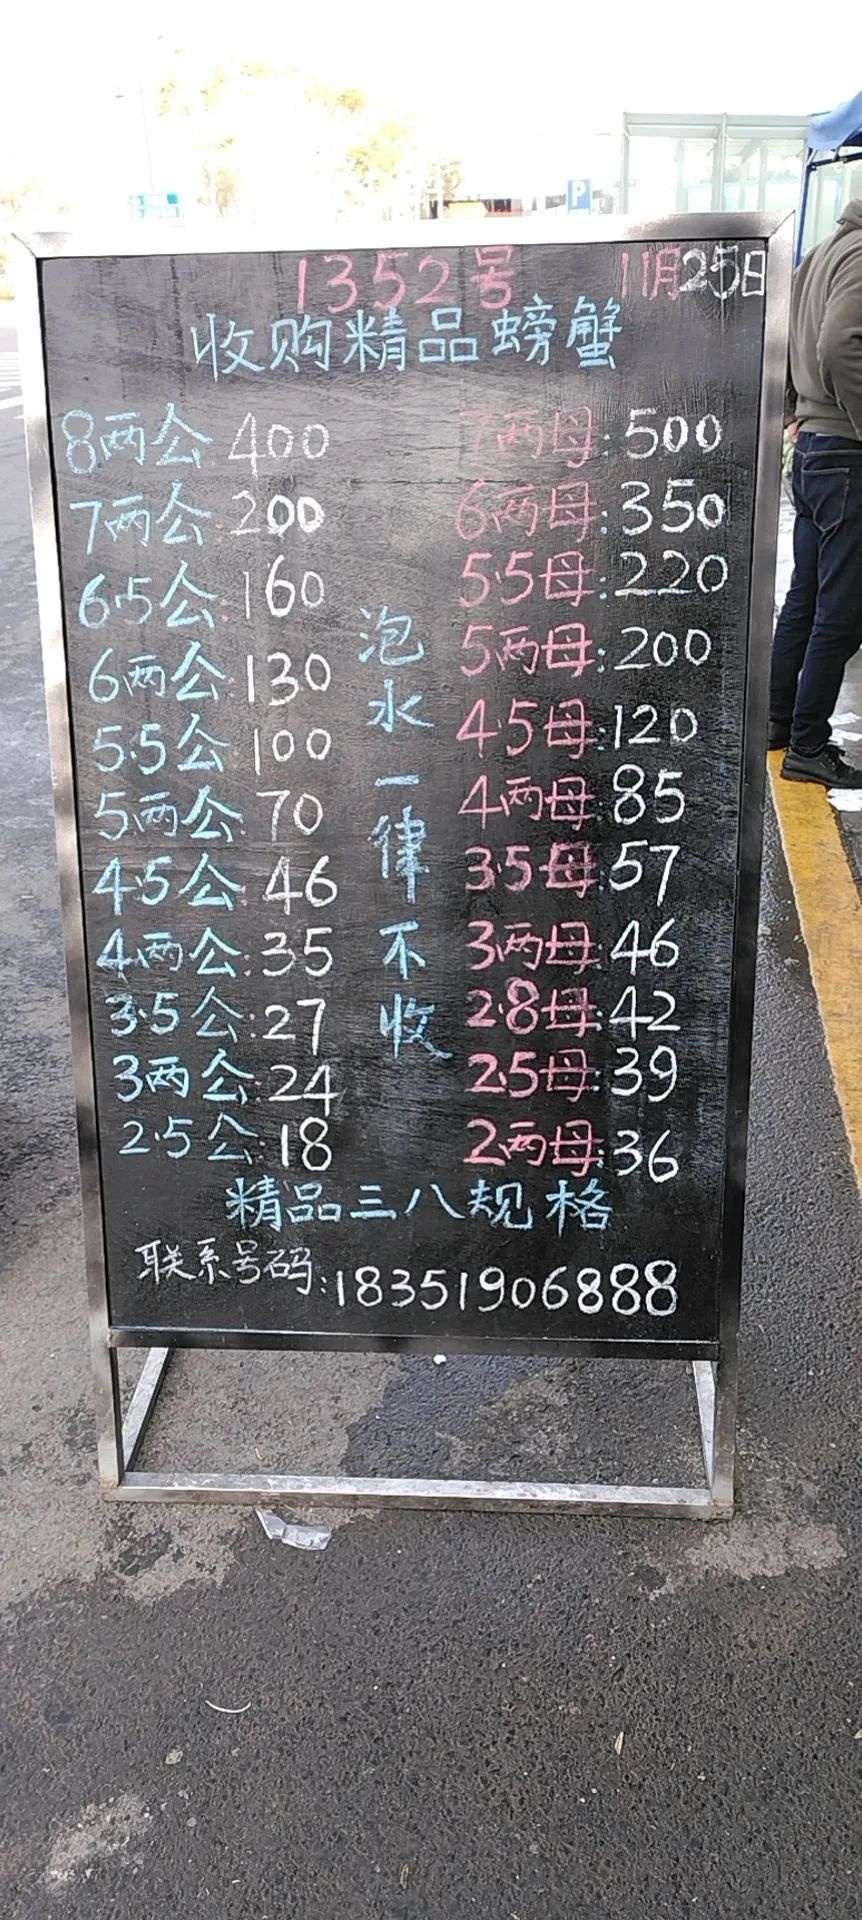 P
1352号 11月25日
收购精品螃蟹
8两公 400
7两公:200
6.5公:160
6两公:130
5.5公 100
5两公:70
4.5公:46
4两公:35
3.5公:27
3两公:24
2.5公:18
泡水一律不收
7两母:500
6两母:350
5.5母:220
5两母:200
4.5母:120
4两母:85
3.5母:57
3两母:46
2.8母:42
2.5母:39
2两母:36
精品三八规格
联系号码:18351906888